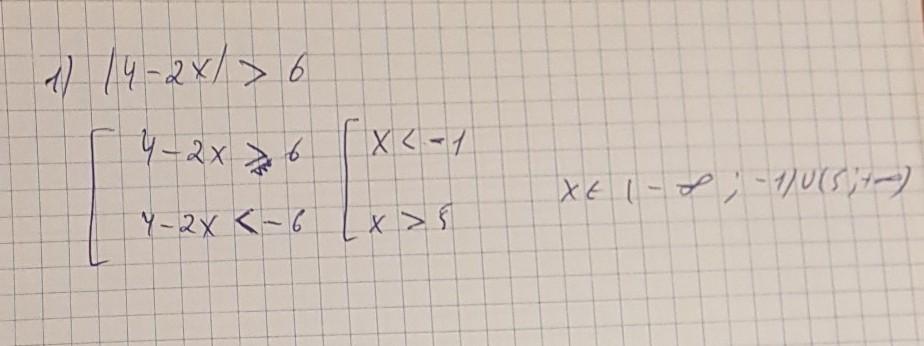 1) |4-2x| > 6
[ 4-2x > 6 [ x < -1
4-2x < -6 x > 5 x ∈ (-∞; -1) ∪ (5; +∞)